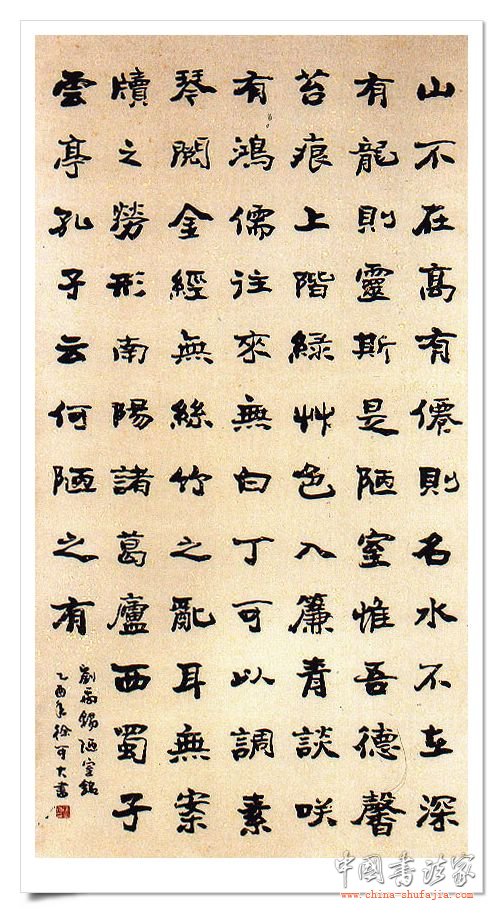 山不在高有僊則名水不在深
有龍則靈斯是陋室惟吾德馨
苔痕上階綠艸色入簾青談咲
有鴻儒往來無白丁可以調素
琴閱金經無絲竹之亂耳無案
牘之勞形南陽諸葛廬西蜀子
雲亭孔子云何陋之有
劉禹錫陋室銘
乙酉年徐可大書
中國書法家
www.china-shufajia.com